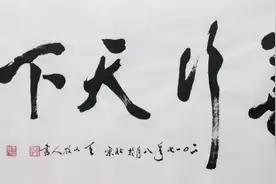 行天下
二〇一七年八月於北京 山人書